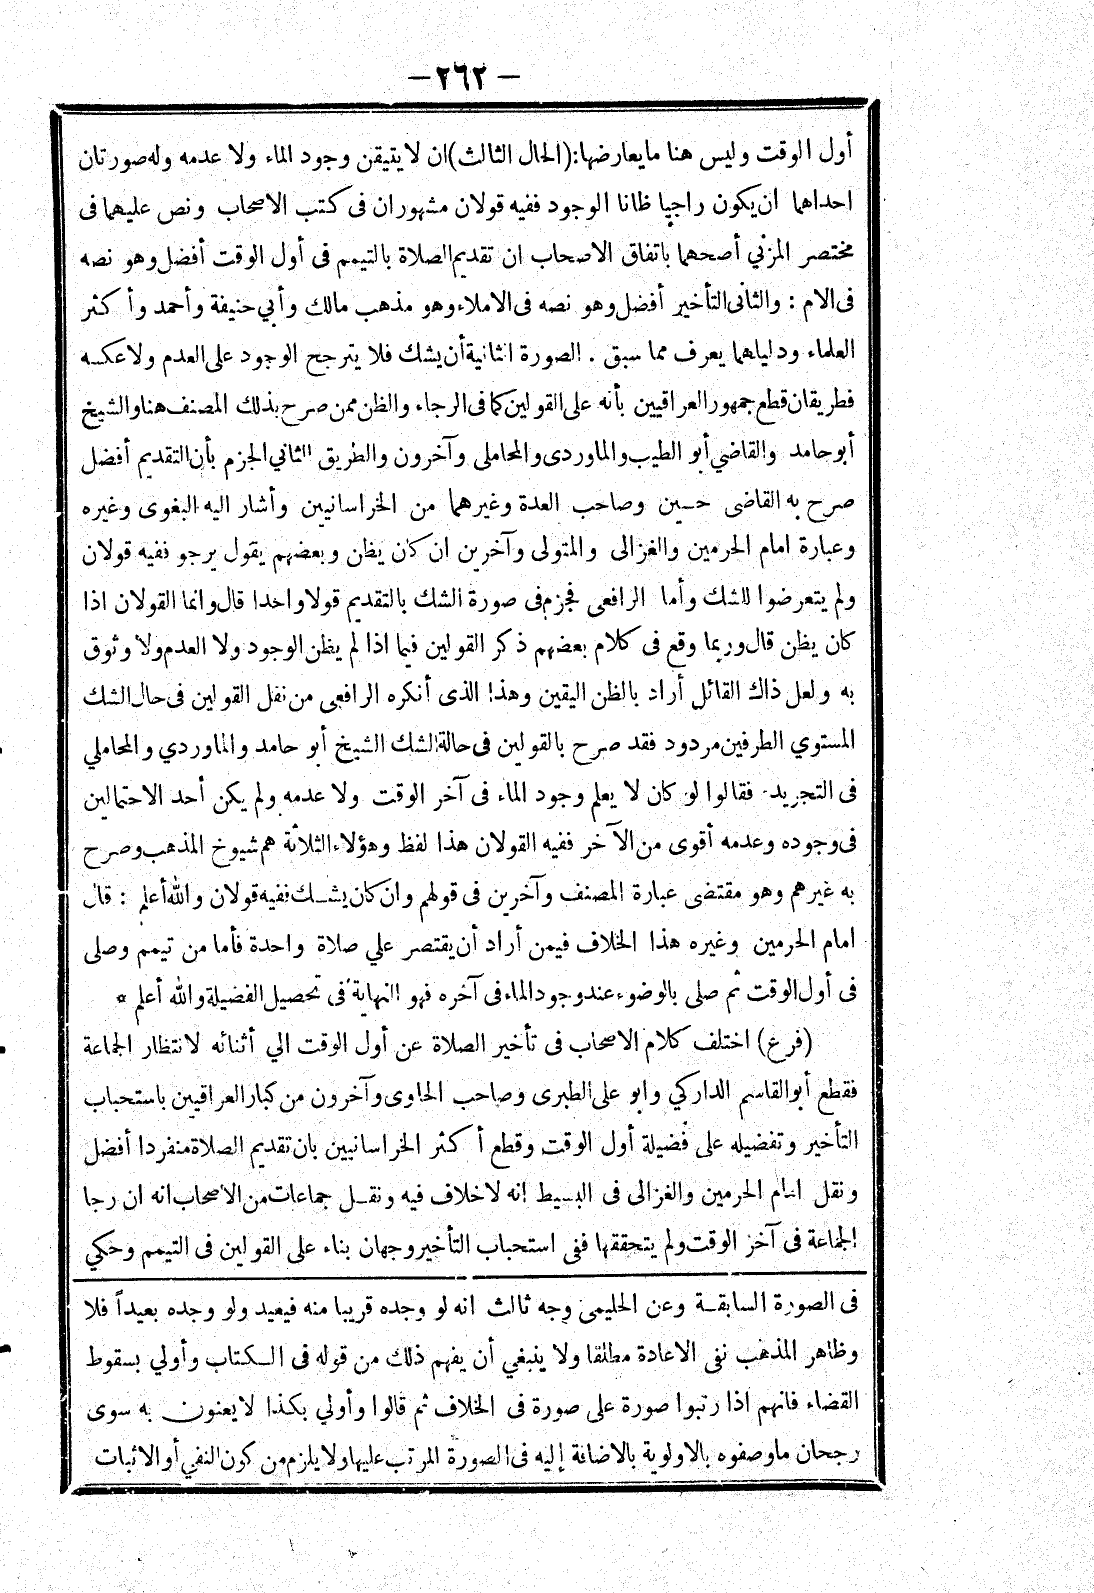 — ٢٦٢ —
أول الوقت وليس هنا ما يعارضها: (الحال الثالث) ان لا يتيقن وجود الماء ولا عدمه وله صورتان
احداهما ان يكون راجيا ظانا الوجود ففيه قولان مشهوران فى كتب الاصحاب ونص عليهما فى
مختصر المزني أصحهما باتفاق الاصحاب ان تقديم الصلاة بالتيمم فى أول الوقت أفضل وهو نصه
فى الام : والثانى التأخير أفضل وهو نصه فى الاملاء وهو مذهب مالك وأبي حنيفة وأحمد وأكثر
العلماء ودليلهما يعرف مما سبق . الصورة الثانية أن يشك فلا يترجح الوجود على العدم ولا عكسه
فطريقان قطع جمهور العراقيين بأنه على القولين كما فى الرجاء والظن ممن صرح بذلك المصنف هنا والشيخ
أبو حامد والقاضي أبو الطيب والماوردى والمحاملى وآخرون والطريق الثاني الجزم بأن التقديم أفضل
صرح به القاضى حسين وصاحب العدة وغيرهما من الخراسانيين وأشار اليه البغوى وغيره
وعبارة امام الحرمين والغزالى والمتولى وآخرين ان كان يظن وبعضهم يقول يرجو ففيه قولان
ولم يتعرضوا للشك وأما الرافعى فجزم فى صورة الشك بالتقديم قولا واحدا قال وانما القولان اذا
كان يظن قال وربما وقع فى كلام بعضهم ذكر القولين فيما اذا لم يظن الوجود ولا العدم ولا وثوق
به ولعل ذاك القائل أراد بالظن اليقين وهذا الذى أنكره الرافعى من نقل القولين فى حال الشك
المستوي الطرفين مردود فقد صرح بالقولين فى حالة الشك الشيخ أبو حامد والماوردي والمحاملي
فى التجريد فقالوا لو كان لا يعلم وجود الماء فى آخر الوقت ولا عدمه ولم يكن أحد الاحتمالين
فى وجوده وعدمه أقوى من الآخر ففيه القولان هذا لفظ وهؤلاء الثلاثة هم شيوخ المذهب وصرح
به غيرهم وهو مقتضى عبارة المصنف وآخرين فى قولهم وان كان يشك ففيه قولان والله أعلم : قال
امام الحرمين وغيره هذا الخلاف فيمن أراد أن يقتصر علي صلاة واحدة فأما من تيمم وصلى
فى أول الوقت ثم صلى بالوضوء عند وجود الماء فى آخره فهو النهاية فى تحصيل الفضيلة والله أعلم *
(فرع) اختلف كلام الاصحاب فى تأخير الصلاة عن أول الوقت الي أثنائه لانتظار الجماعة
فقطع أبو القاسم الداركي وابو على الطبرى وصاحب الحاوى وآخرون من كبار العراقيين باستحباب
التأخير وتفضيله على فضيلة أول الوقت وقطع أكثر الخراسانيين بان تقديم الصلاة منفردا أفضل
ونقل امام الحرمين والغزالى فى البسيط انه لا خلاف فيه ونقل جماعات من الاصحاب انه ان رجا
الجماعة فى آخر الوقت ولم يتحققها ففى استحباب التأخير وجهان بناء على القولين فى التيمم وحكي
فى الصورة السابقة وعن الحليمى وجه ثالث انه لو وجده قريبا منه فيعيد ولو وجده بعيداً فلا
وظاهر المذهب نفى الاعادة مطلقا ولا ينبغي أن يفهم ذلك من قوله فى الكتاب وأولي بسقوط
القضاء فانهم اذا رتبوا صورة على صورة فى الخلاف ثم قالوا وأولي بكذا لا يعنون به سوى
رجحان ما وصفوه بالاولوية بالاضافة إليه فى الصورة المرتب عليها ولا يلزم من كون النفي أو الاثبات